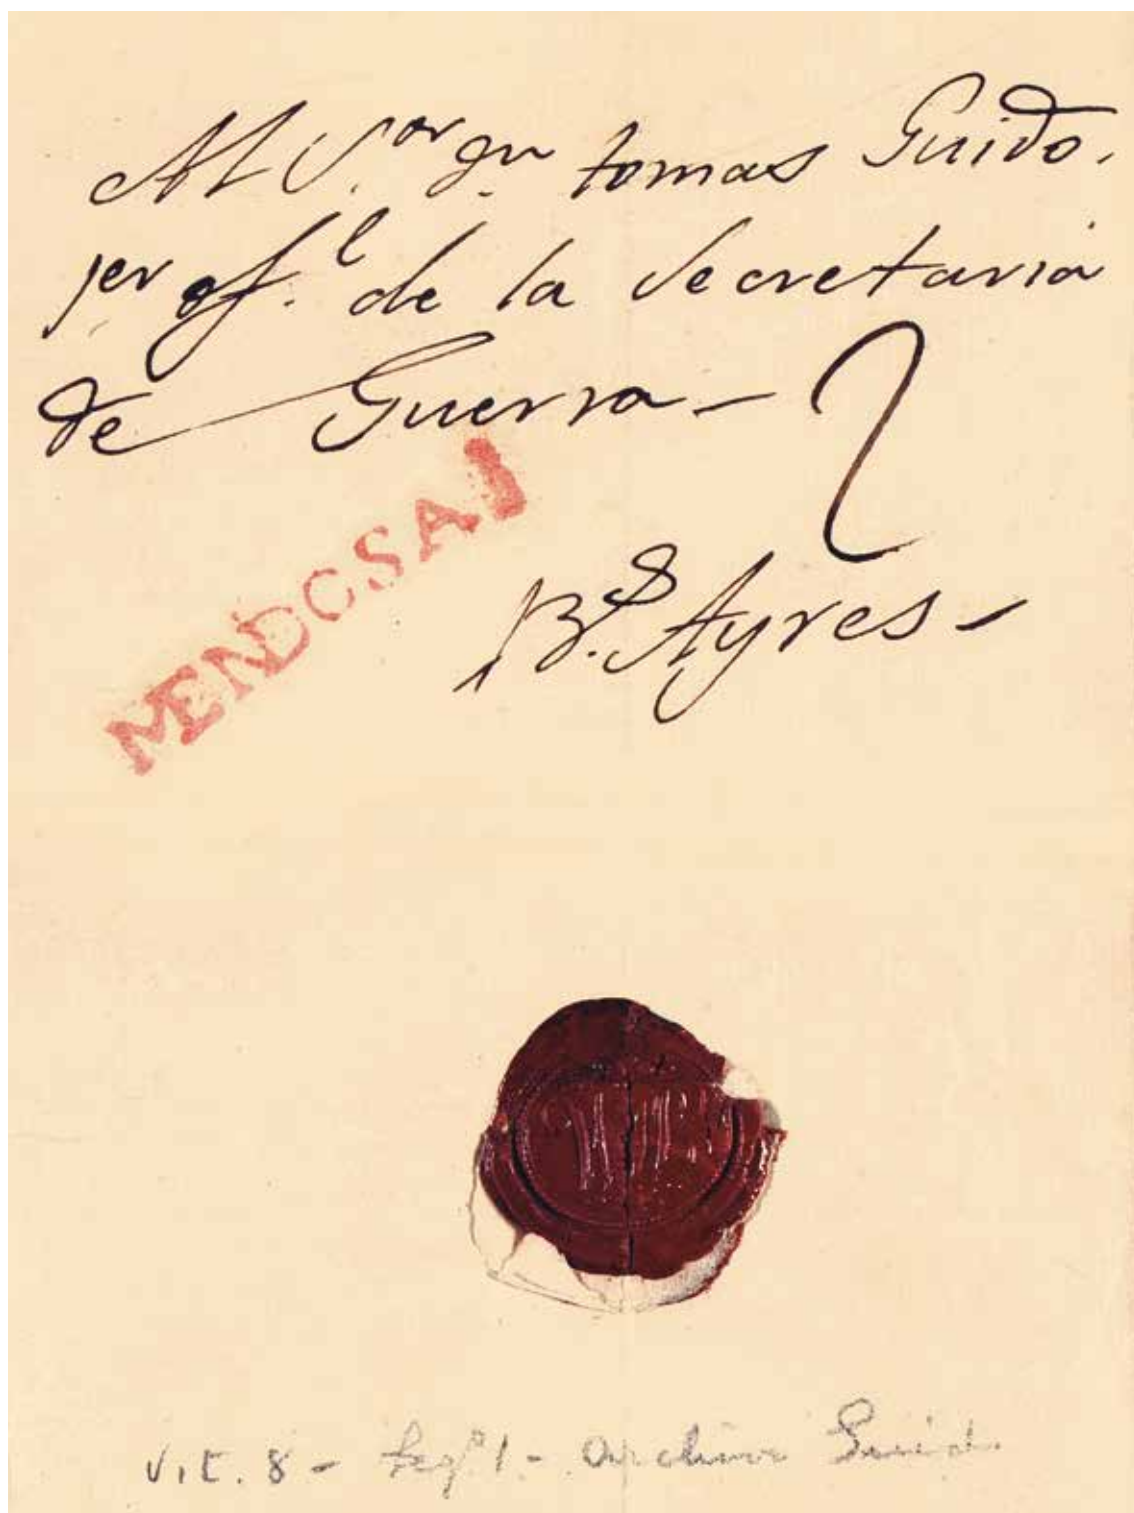 Al S.or Dn tomas Guido.
1er of.l de la Secretaria
de Guerra -
MENDOSA
Bs. Ayres -
Vit. 8 - Leg.o 1 - Archivo Guido